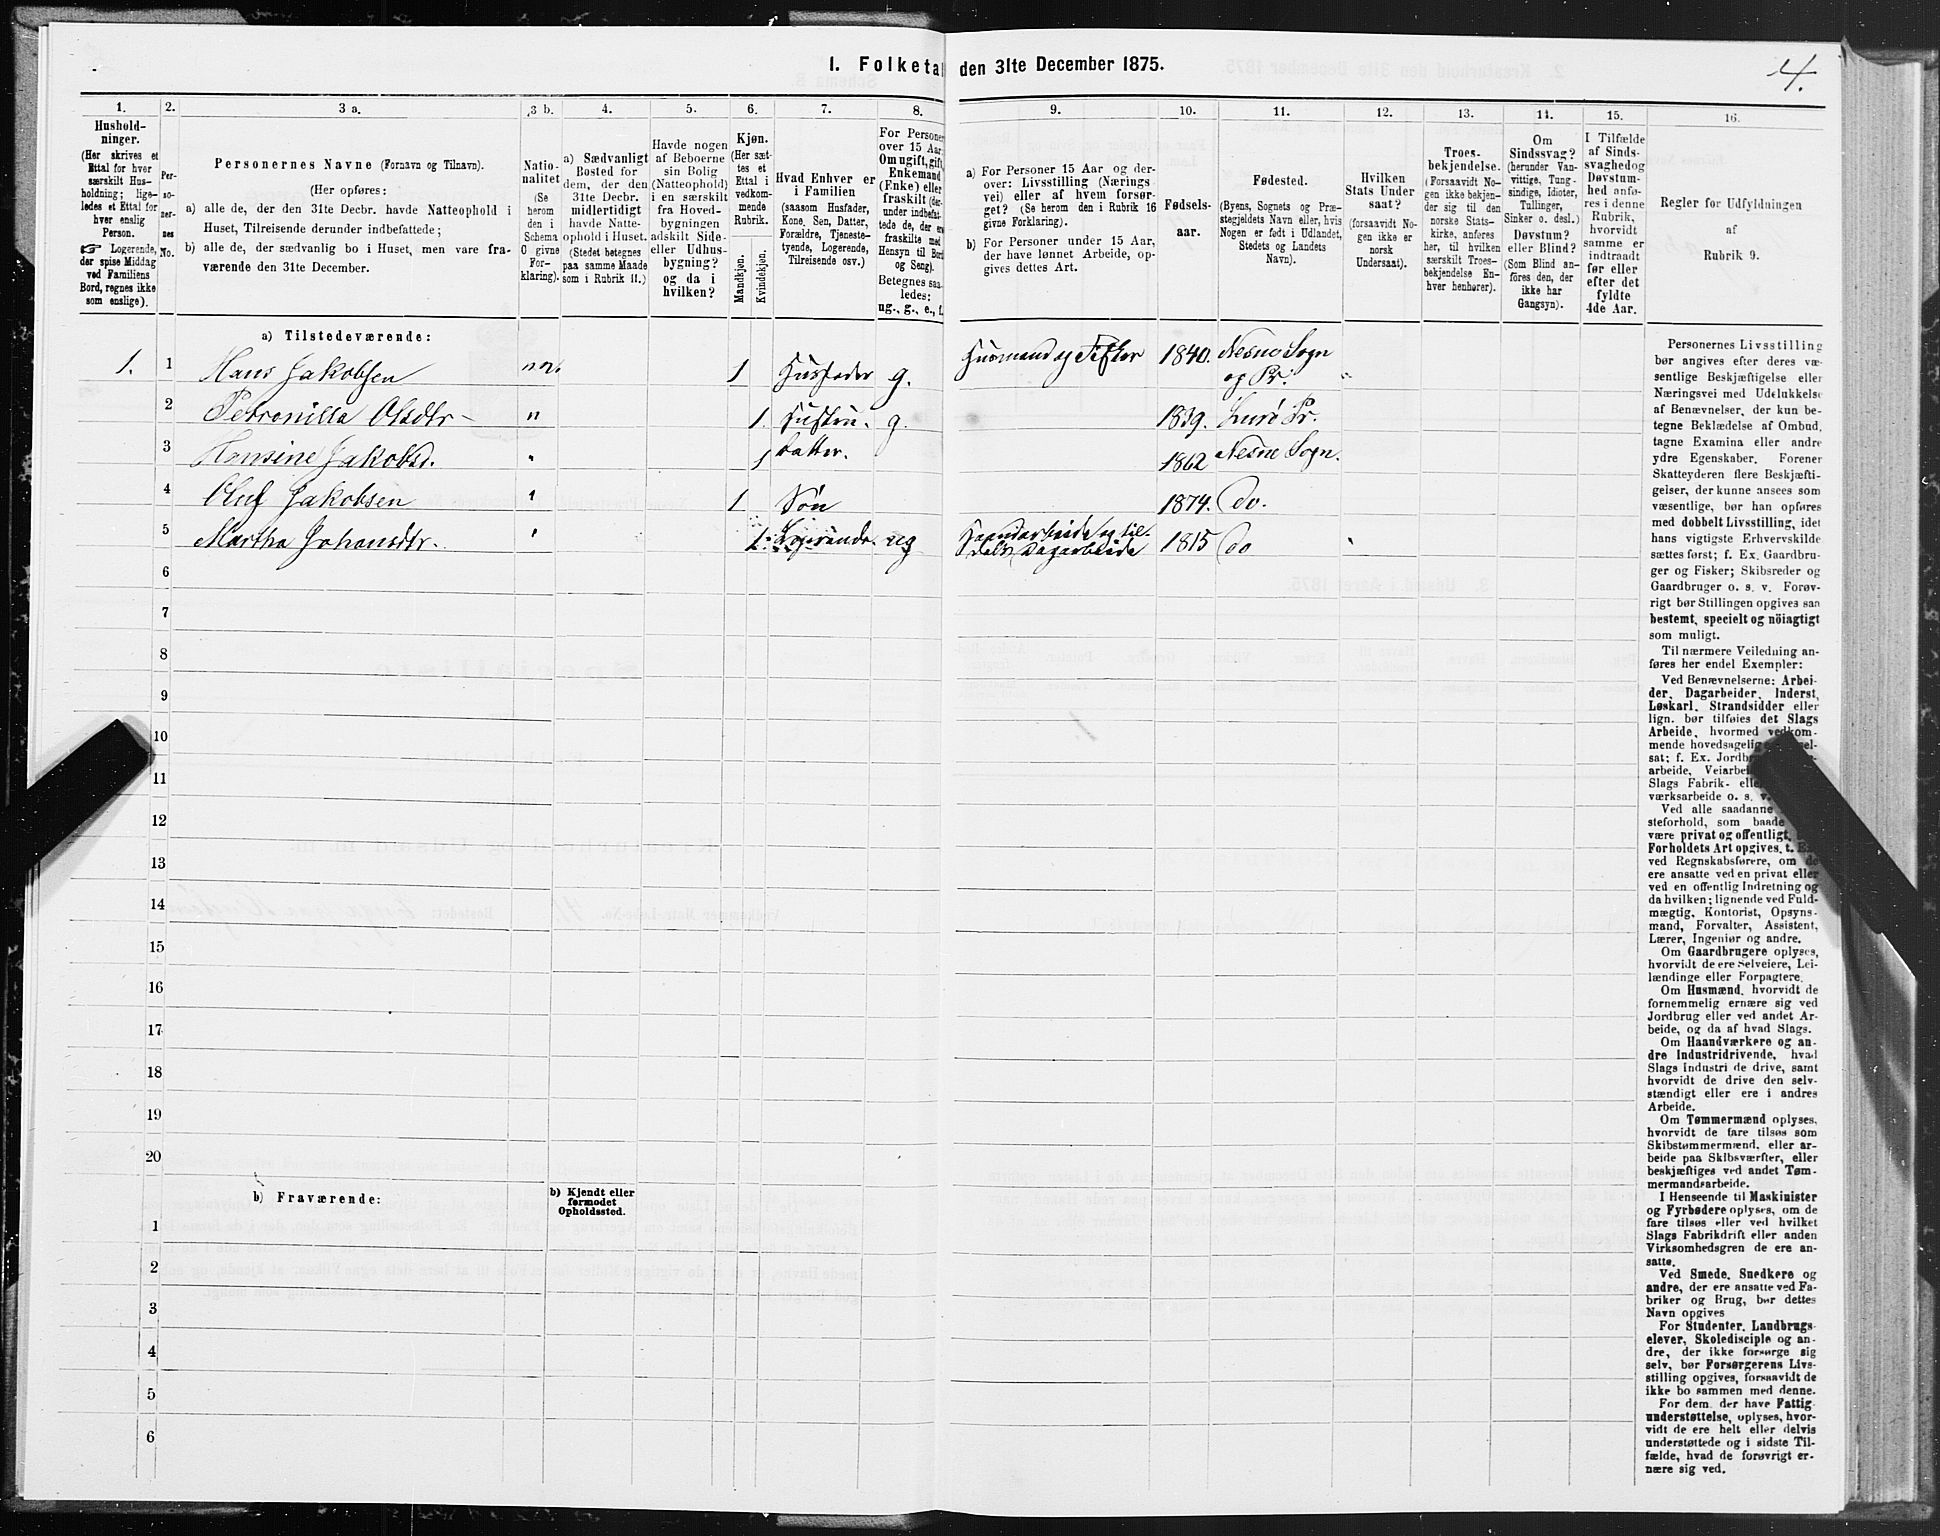 I. Folketal den 31te December 1875.
4.
1. 2. 3 a. 3 b. 4. 5. 6. 7. 8. 9. 10. 11. 12. 13. 14. 15. 16.
Hushold-
ninger.
(Her skrives et
Ettal for hver
særskilt Hus-
holdning; lige-
ledes et Ettal for
hver enslig
Person.
☞ Logerende,
der spise Middag
ved Familiens
Bord, regnes ikke
som enslige).
Per-
so-
ner-
nes
No.
Personernes Navne (Fornavn og Tilnavn).
(Her opføres:
a) alle de, der den 31te Decbr. havde Natteophold i
Huset, Tilreisende derunder indbefattede;
b) alle de, der sædvanlig bo i Huset, men vare fra-
værende den 31te December.
Natio-
nalitet
(Se
herom
den i
Schema
O givne
For-
klaring).
a) Sædvanligt
Bosted for
dem, der den
31te Decbr.
midlertidigt
havde Natte-
ophold i Huset.
(Stedet betegnes
paa samme Maade
som i Rubrik 11.)
Havde nogen
af Beboerne
sin Bolig
(Natteophold)
i en særskilt
fra Hoved-
bygningen
adskilt Side-
eller Udhus-
bygning?
og da i
hvilken?
Kjøn.
(Her sæt-
tes et
Ettal i
vedkom-
mende
Rubrik.
Mandkjøn.
Kvindekjøn.
Hvad Enhver er
i Familien
(saasom Husfader,
Kone, Søn, Datter,
Forældre, Tjeneste-
tyende, Logerende,
Tilreisende osv.)
For Personer
over 15 Aar:
Om ugift, gift,
Enkemand
(Enke) eller
fraskilt (der-
under indbefat-
tede de, der ere
fraskilte med
Hensyn til Bord
og Seng).
Betegnes saa-
ledes:
ug., g., e., f.
a) For Personer 15 Aar og der-
over: Livsstilling (Nærings
vei) eller af hvem forsør-
get? (Se herom den i Rubrik 16
givne Forklaring).
b) For Personer under 15 Aar,
der have lønnet Arbeide, op-
gives dettes Art.
Fødsels-
aar.
Fødested.
(Byens, Sognets og Præ-
stegjeldets Navn eller, hvis
Nogen er født i Udlandet,
Stedets og Landets
Navn).
Hvilken
Stats Under
saat?
(forsaavidt No-
gen ikke er
norsk
Undersaat).
Troes-
bekjendelse.
(Forsaavidt No-
gen ikke bekjen-
der sig til den
norske Stats-
kirke, anføres
her, til hvilken
særskilt Troes-
bekjendelse En-
hver henhører).
Om
Sindssvag?
(herunder Van-
vittige, Tung-
sindige, Idioter,
Tullinger,
Sinker o. desl.)
Døvstum?
eller Blind?
(Som Blind an-
føres den, der
ikke har
Gangsyn).
I Tilfælde
af Sinds-
svaghed og
Døvstum-
hed anfø-
res i denne
Rubrik,
hvorvidt
samme er
indtraadt
før eller
efter det
fyldte
4de Aar.
Regler for Udfyldningen
af
Rubrik 9.
a) Tilstedeværende:
1. 1 Hans Jakobsen nn. 1 Husfader g. Husmand og Fisker 1840. Nesne Sogn
og Pr.
2 Petronilla Olsdtr n 1. Hustru. g. 1839. Lurø Pr.
3 Hansine Jakobsd. " 1 Datter. 1862 Nesne Sogn.
4 Oluf Jakobsen " 1 Søn 1874. Do.
5 Martha Johansdtr. " 1. Logerende. ug Haandarbeide og til-
dels Dagarbeide 1815 Do
6
7
8
9
10
11
12
13
14
15
16
17
18
19
20
b) Fraværende:
b) Kjendt eller
formodet
Opholdssted.
1
2
3
4
5
6
Personernes Livsstilling
bør angives efter deres væ-
sentlige Beskjæftigelse eller
Næringsvei med Udelukkelse
af Benævnelser, der kun be-
tegne Beklædelse af Ombud,
tagne Examina eller andre
ydre Egenskaber. Forener
Skatteyderen flere Beskjæfti-
gelser, der kunne ansees som
væsentlige, bør han opføres
med dobbelt Livsstilling, idet
hans vigtigste Erhvervskilde
sættes først; f. Ex. Gaardbru-
ger og Fisker; Skibsreder og
Gaardbruger o. s. v. Forøv-
rigt bør Stillingen opgives saa
bestemt, specielt og nöiagtigt
som muligt.
Til nærmere Veiledning an-
føres her endel Exempler:
Ved Benævnelserne: Arbei-
der, Dagarbeider, Inderst,
Løskarl, Strandsidder eller
lign. bør tilføies det Slags
Arbeide, hvormed vedkom-
mende hovedsagelig
sat; f. Ex.
arbeide,
Slags Fabrik-
værksarbeide o. s. v.
Ved alle saadanne
steforhold, som baade
være privat og offentligt,
Forholdets Art opgives,
ved Regnskabsførere, om de
ere ansatte ved en privat eller
ved en offentlig Indretning og
da hvilken; lignende ved Fuld-
mægtig, Kontorist, Opsyns-
mand, Forvalter, Assistent,
Lærer, Ingeniør og andre.
Om Gaardbrugere oplyses,
hvorvidt de ere Selveiere, Lei-
lændinge eller Forpagtere.
Om Husmænd, hvorvidt de
fornemmelig ernære sig ved
Jordbrug eller ved andet Ar-
beide, og da af hvad Slags.
Om Haandværkere og an-
dre Industridrivende, hvad
Slags Industri de drive, samt
hvorvidt de drive den selv-
stændigt eller ere i andres
Arbeide.
Om Tømmermænd oplyses,
hvorvidt de fare tilsøs som
Skibstømmermænd, eller ar-
beide paa Skibsværfter, eller
beskjæftiges ved andet Tøm-
mermandsarbeide.
I Henseende til Maskinister
og Fyrbødere oplyses, om de
fare tilsøs eller ved hvilket
Slags Fabrikdrift eller anden
Virksomhedsgren de ere an-
satte.
Ved Smede, Snedkere og
andre, der ere ansatte ved Fa-
briker og Brug, bør dettes
Navn opgives
For Studenter, Landbrugs-
elever, Skoledisciple og an-
dre, der ikke forsørge sig
selv, bør Forsørgerens Livs-
stilling opgives, forsaavidt de
ikke bo sammen med denne.
For dem, der have Fattig-
understøttelse, oplyses, hvor-
vidt de ere helt eller delvis
understøttede og i sidste Til-
fælde, hvad de forøvrigt er-
nære sig ved.